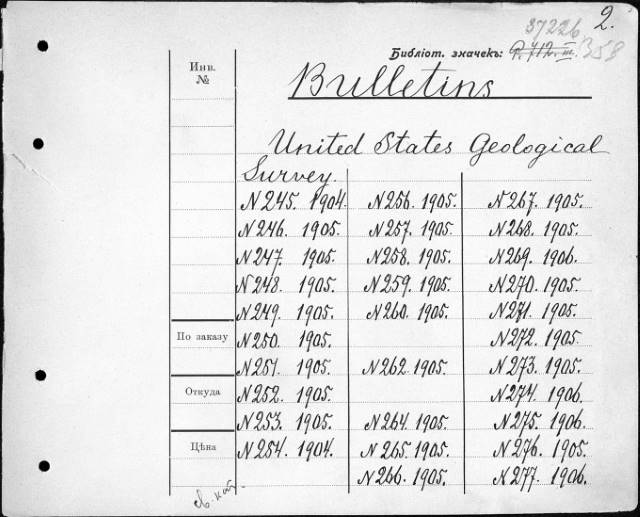 2.
37226
Библіот. значекъ: 358
Инв.
№
Bulletins
United States Geological
Survey.
N 245. 1904. N 256. 1905. N 267. 1905.
N 246. 1905. N 257. 1905. N 268. 1905.
N 247. 1905. N 258. 1905. N 269. 1906.
N 248. 1905. N 259. 1905. N 270. 1905.
N 249. 1905. N 260. 1905. N 271. 1905.
По заказу N 250. 1905. N 272. 1905.
N 251. 1905. N 262. 1905. N 273. 1905.
Откуда N 252. 1905. N 274. 1906.
N 253. 1905. N 264. 1905. N 275. 1906.
Цѣна N 254. 1904. N 265. 1905. N 276. 1905.
N 266. 1905. N 277. 1906.